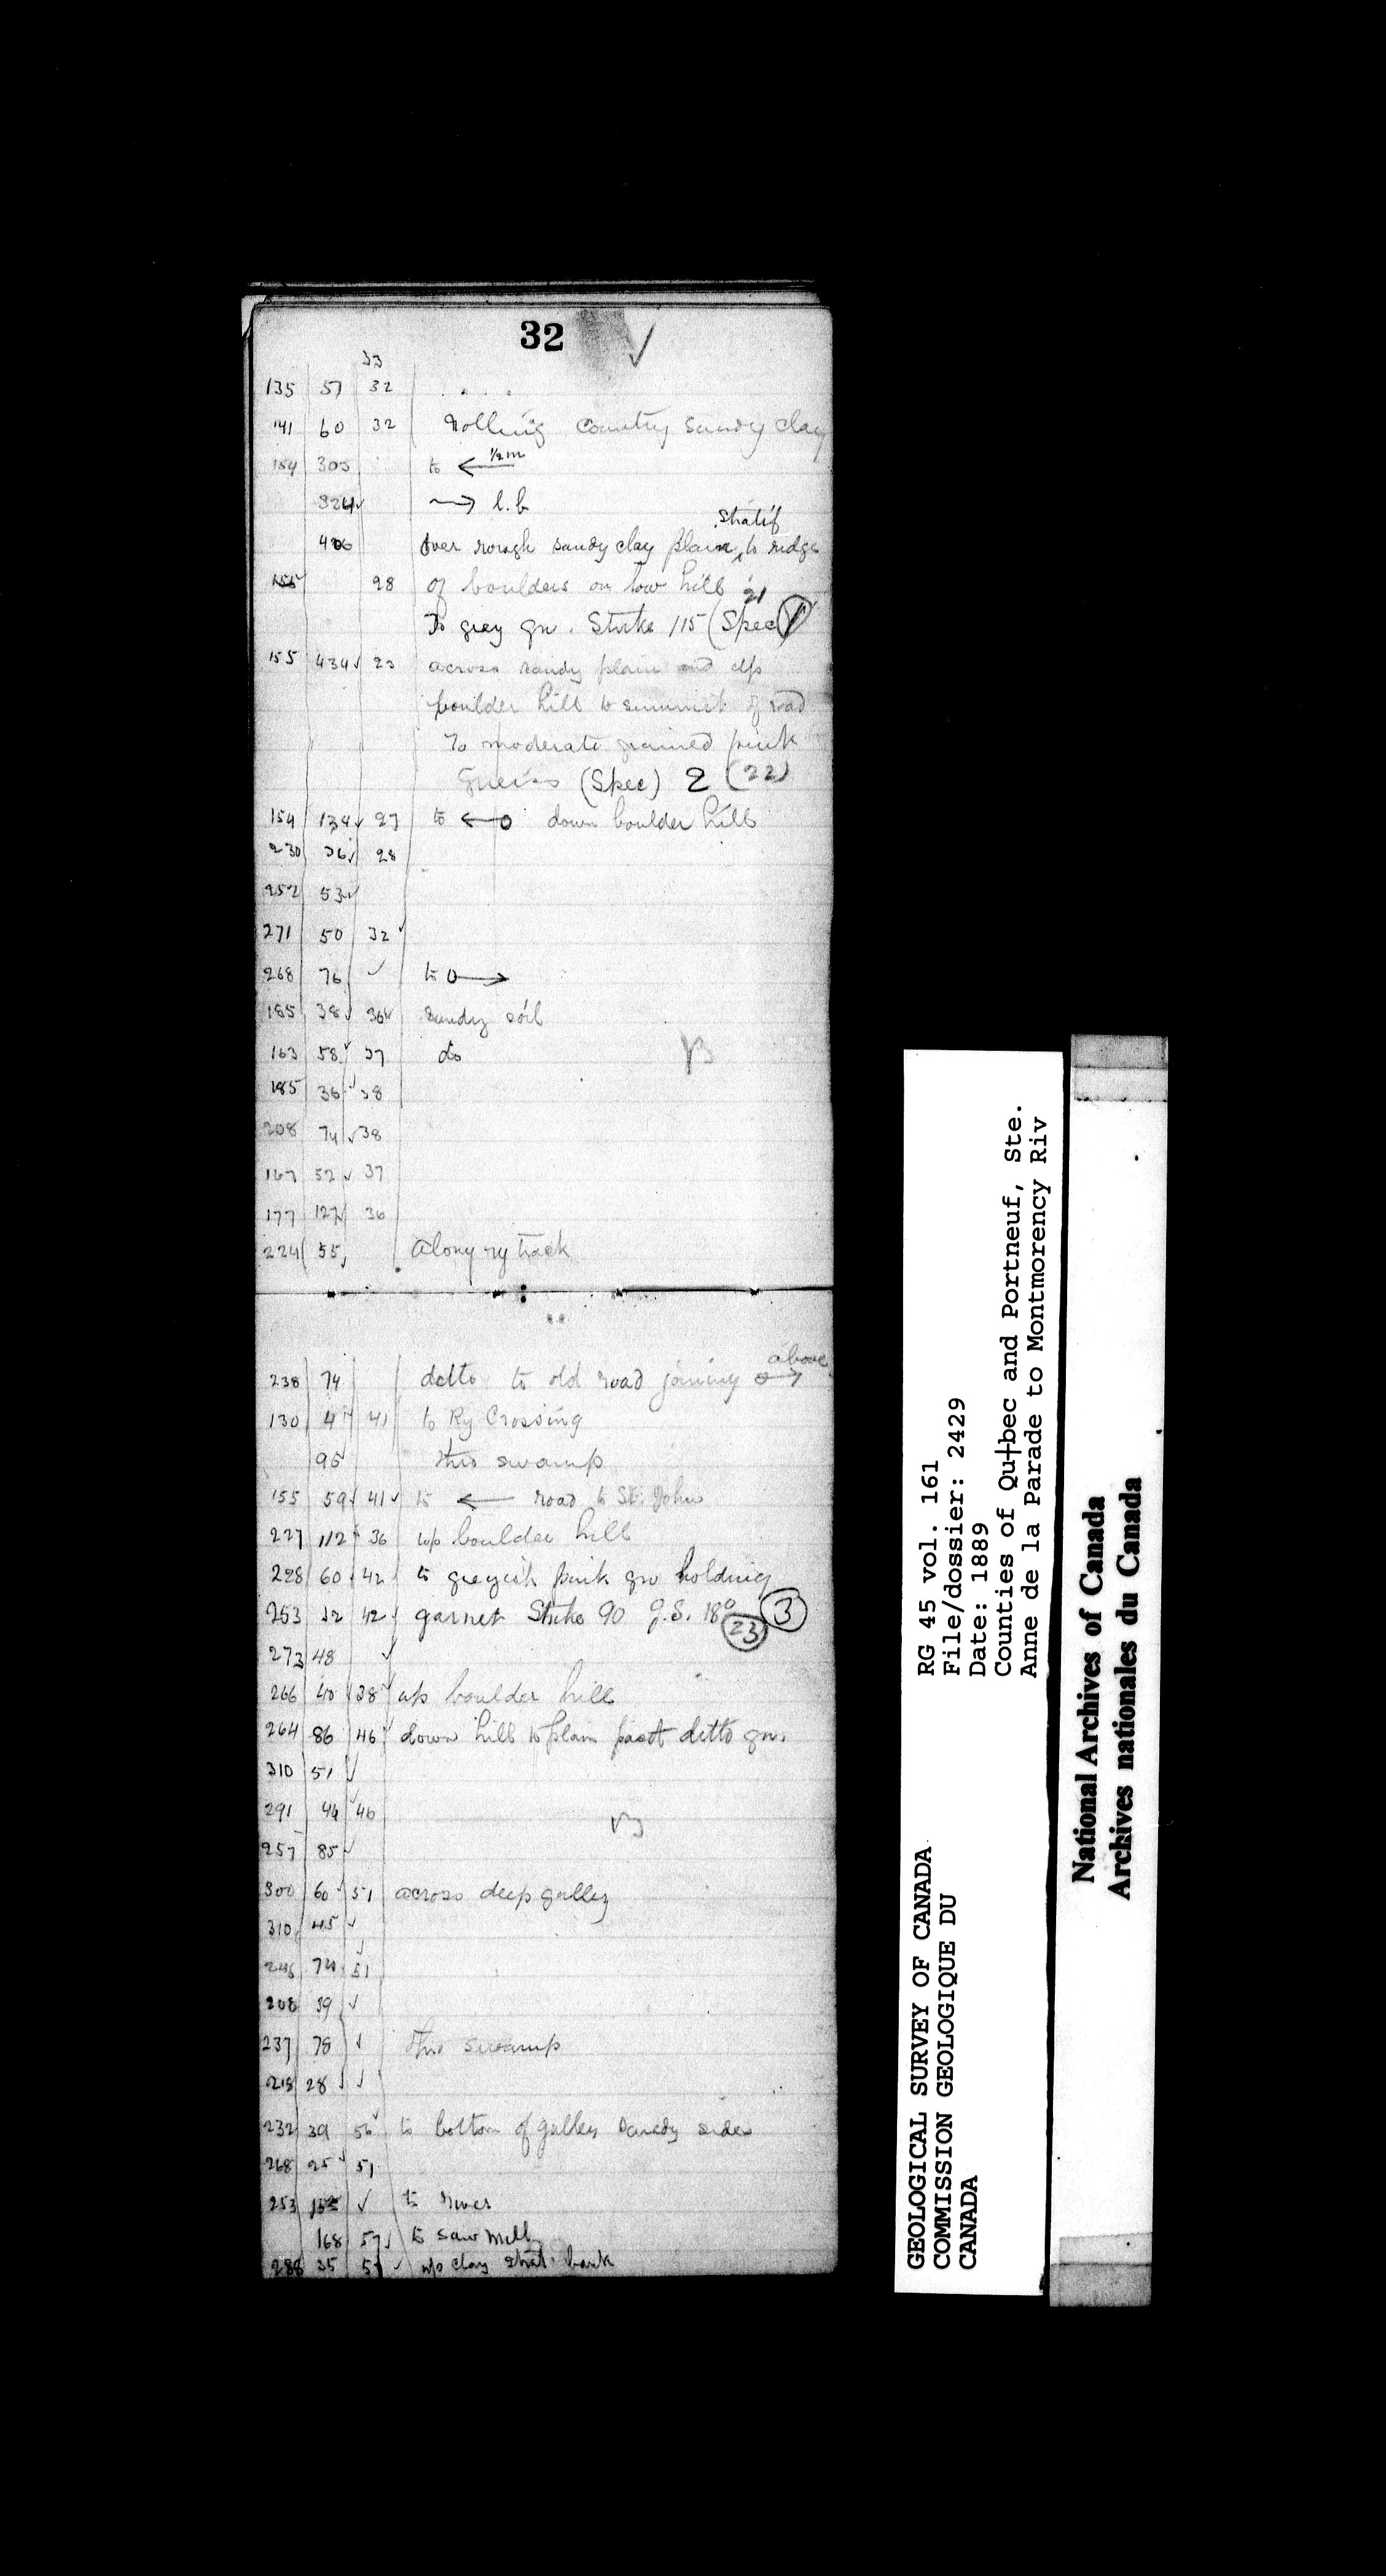 32
33
135 57 32 . . . .
141 60 32 Rolling country sandy clay
154 305 to ← 1/2 m
324 → l.b
stratif
406 over rough sandy clay plain, to ridge
155 28 of boulders on low hill
21
To grey gn. Strike 115 (Spec) 1
155 434 23 across sandy plain and up
boulder hill to summit of road
To moderate grained pink
Gneiss (Spec) 2 (22)
154 134 27 to ←o down boulder hill
230 36 28
252 53
271 50 32
268 76 to o→
185 38 36 sandy soil
163 58 37 do
185 36 38
208 74 38
167 52 37
177 127 36
224 55 Along ry track
above
238 74 ditto to old road joining o→
130 4 41 to Ry Crossing
95 thro swamp
155 59 41 to ← road to St. Johns
227 112 36 up boulder hill
228 60 42 to greyish pink gn holding
253 32 42 garnet Strike 90 g.S. 18° 3
23
273 48
266 40 38 up boulder hill
264 86 46 down hill to plain past ditto gn.
310 51
291 44 46
257 85
300 60 51 across deep gulley
310 45
246 74 51
208 39
237 78 thro swamp
218 28
232 39 56 to bottom of gulley sandy sides
268 25 51
253 to river
168 57 to saw mill
288 35 57 up clay strat. bank
GEOLOGICAL SURVEY OF CANADA
COMMISSION GEOLOGIQUE DU
CANADA
RG 45 vol. 161
File/dossier: 2429
Date: 1889
Counties of Qu┼bec and Portneuf, Ste.
Anne de la Parade to Montmorency Riv
National Archives of Canada
Archives nationales du Canada